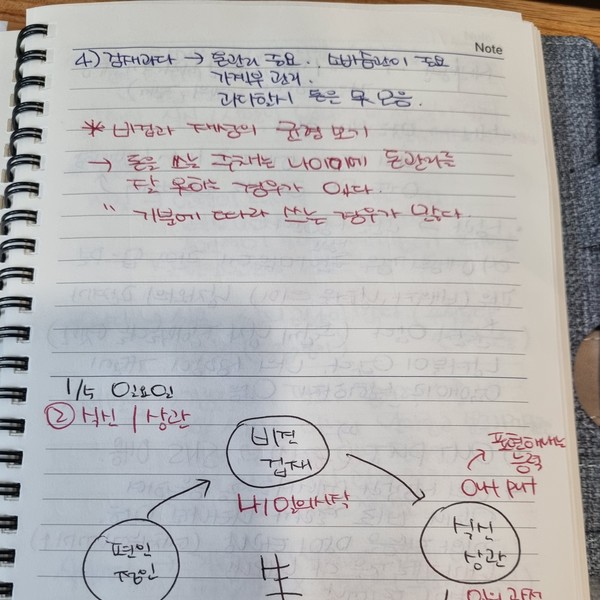 Note
4) 겁재과다 → 돈관리 중요., 소비습관이 중요
가계부 관리.
과다할시 돈은 못 모음.
* 비겁과 재성의 균형 보기
→ 돈을 쓰는 주체는 나이기에 돈관리를
잘 못하는 경우가 있다.
" 기분에 따라 쓰는 경우가 많다.
1/5 일요일
② 식신 / 상관
비견
겁재
표현해내는
능력
out put
나
식신
상관
편인
정인